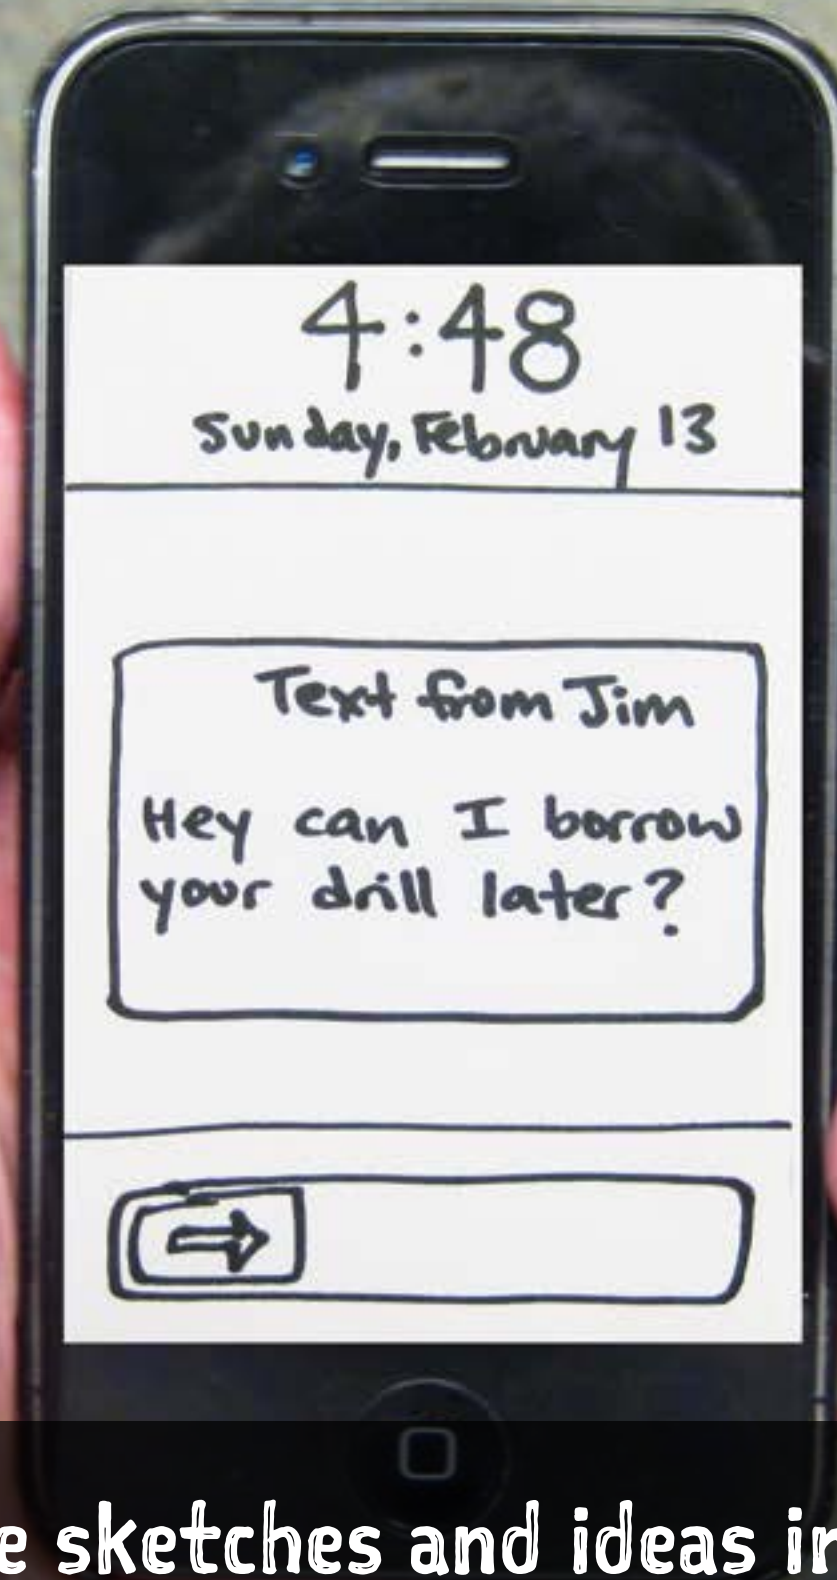 4:48
Sunday, February 13
Text from Jim
Hey can I borrow
your drill later?
e sketches and ideas in